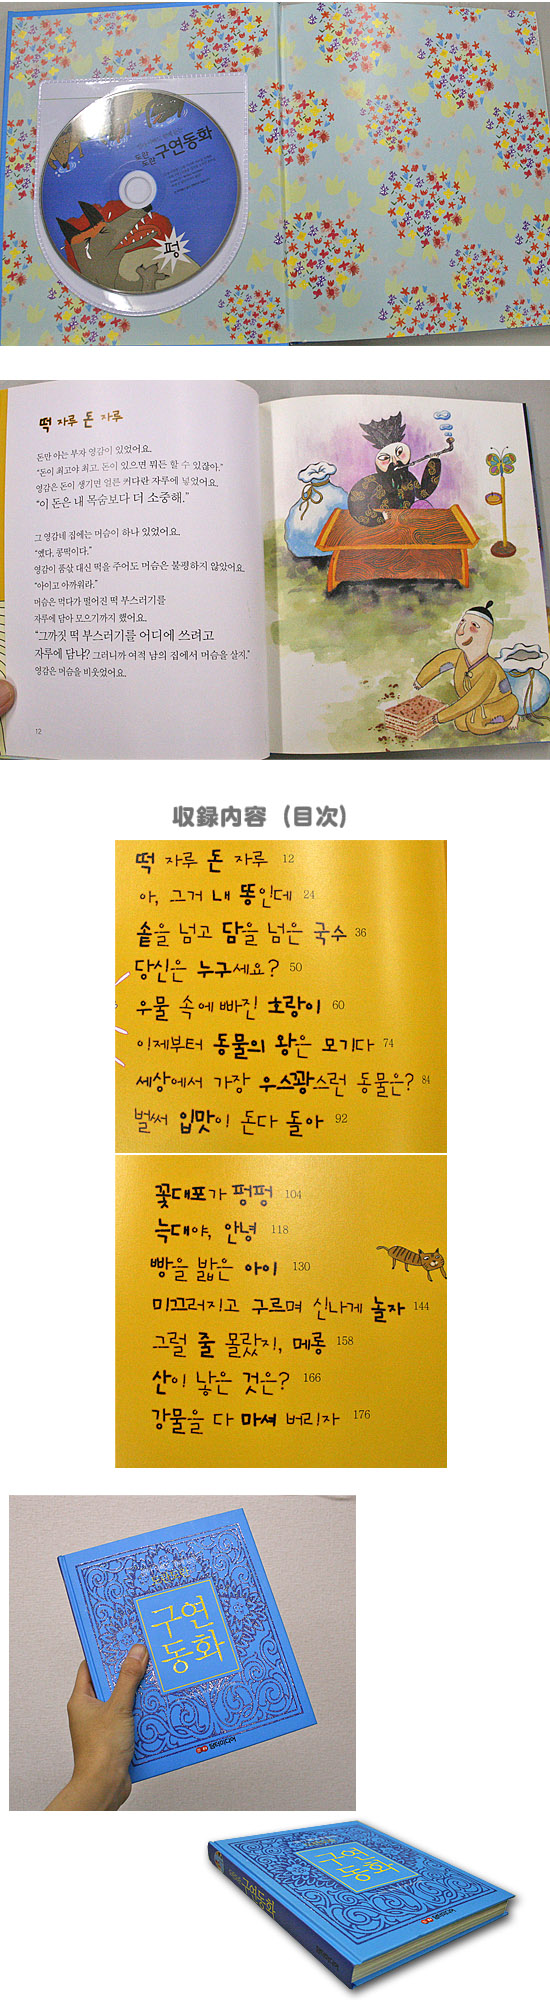 구연동화
펑
떡 자루 돈 자루
돈만 아는 부자 영감이 있었어요.
“돈이 최고야 최고. 돈이 있으면 뭐든 할 수 있잖아.”
영감은 돈이 생기면 얼른 커다란 자루에 넣었어요.
“이 돈은 내 목숨보다 더 소중해.”
그 영감네 집에는 머슴이 하나 있었어요.
“옜다, 콩떡이다.”
영감이 품삯 대신 떡을 주어도 머슴은 불평하지 않았어요.
“아이고 아까워라.”
머슴은 먹다가 떨어진 떡 부스러기를
자루에 담아 모으기까지 했어요.
“그까짓 떡 부스러기를 어디에 쓰려고
자루에 담나? 그러니까 여적 남의 집에서 머슴을 살지.”
영감은 머슴을 비웃었어요.
12
収録内容（目次）
떡 자루 돈 자루 12
아, 그거 내 똥인데 24
솥을 넘고 담을 넘은 국수 36
당신은 누구세요? 50
우물 속에 빠진 호랑이 60
이제부터 동물의 왕은 모기다 74
세상에서 가장 우스꽝스런 동물은? 84
벌써 입맛이 돈다 돌아 92
꽃대포가 펑펑 104
늑대야, 안녕 118
빵을 밟은 아이 130
미끄러지고 구르며 신나게 놀자 144
그럴 줄 몰랐지, 메롱 158
산이 낳은 것은? 166
강물을 다 마셔 버리자 176
구연
동화
구연
동화
구연동화